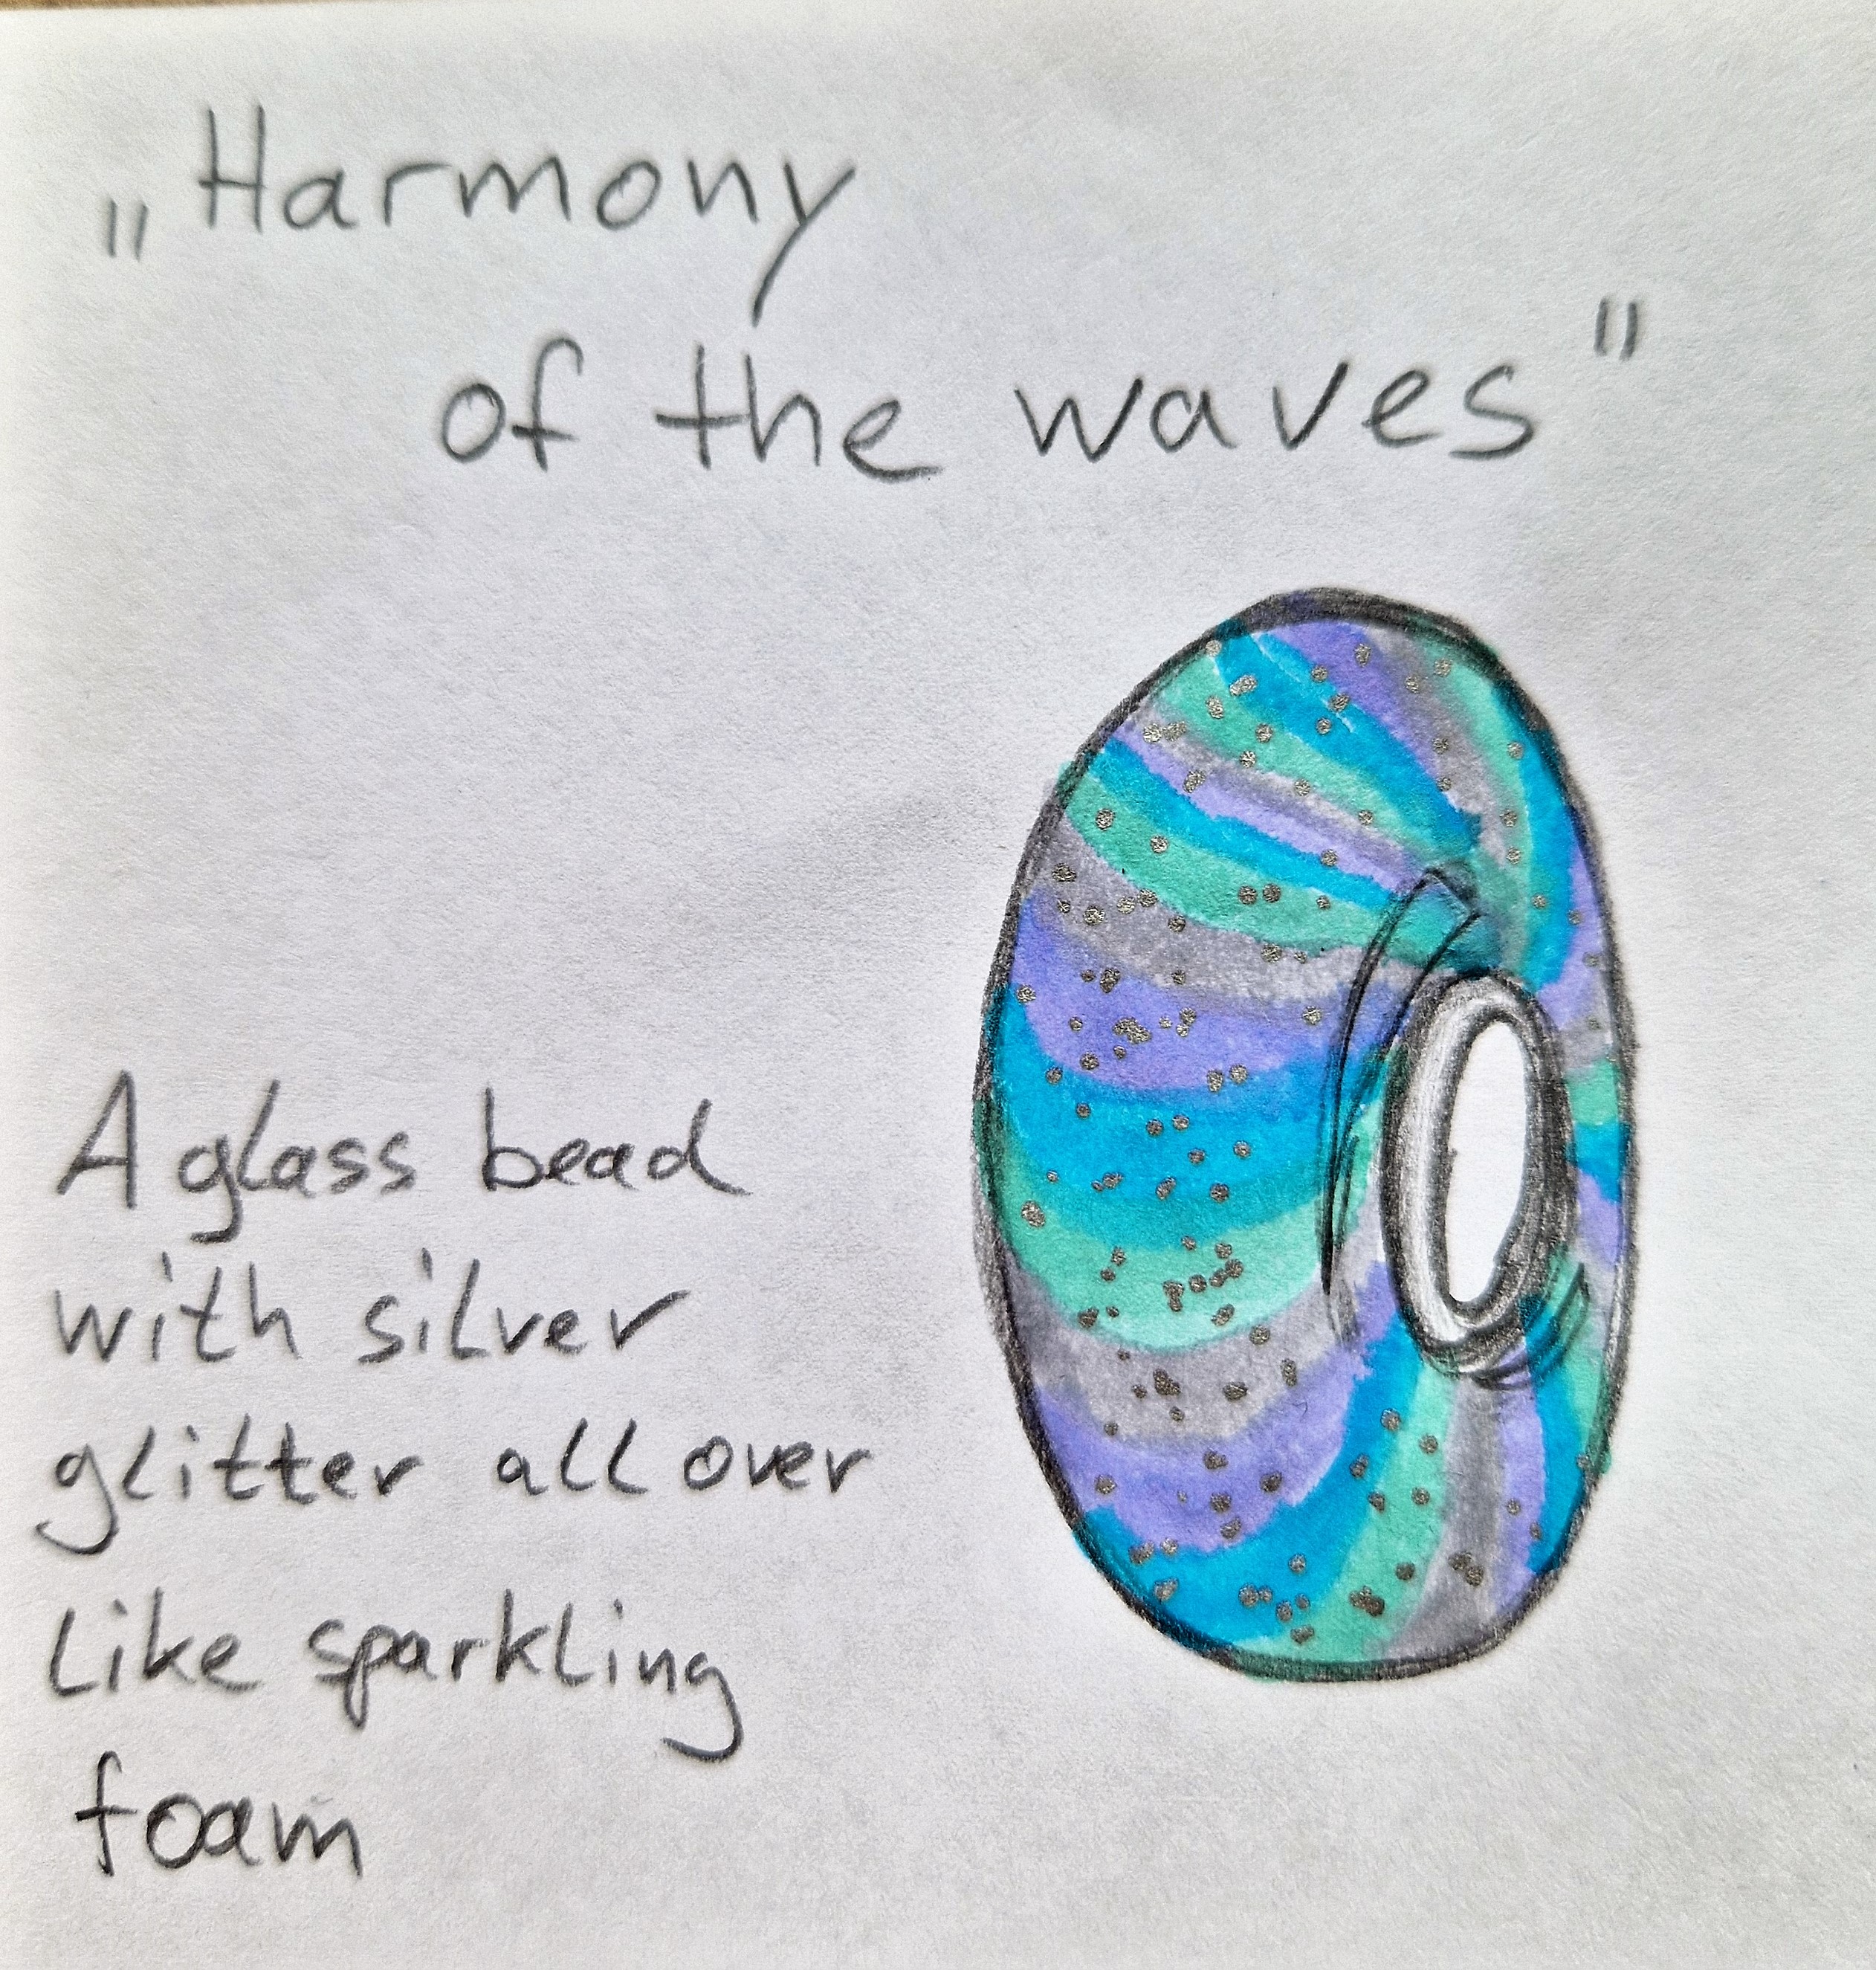 „Harmony
of the waves"
A glass bead
with silver
glitter all over
like sparkling
foam